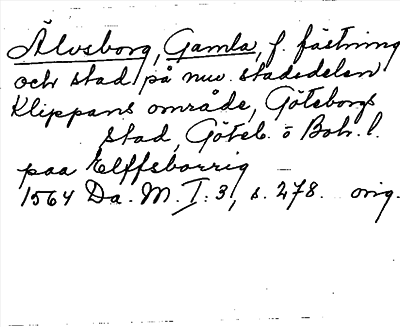 Älvsborg, Gamla, f. fästning
och stad på nuv. stadsdelen
Klippans område, Göteborgs
stad, Göteb. o Boh. l.
paa Elffsborrig
1564 Da. M. I: 3, s. 278. orig.